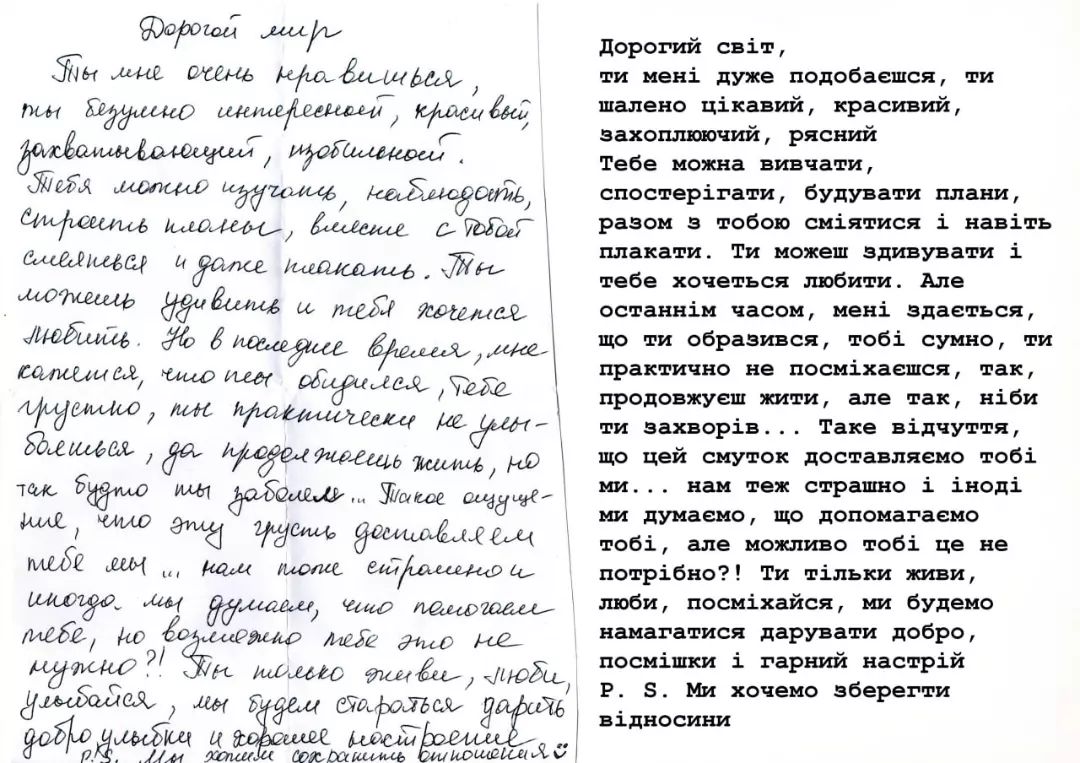 Дорогой мир
Ты мне очень нравишься,
ты безумно интересный, красивый,
захватывающий, изобильный.
Тебя можно изучать, наблюдать,
строить планы, вместе с тобой
смеяться и даже плакать. Ты
можешь удивить и тебя хочется
любить. Но в последние время, мне
кажется, что ты обиделся, тебе
грустно, ты практически не улы-
баешься, да продолжаешь жить, но
так будто ты заболел... Такое ощуще-
ние, что эту грусть доставляем
тебе мы ... нам тоже страшно и
иногда мы думаем, что помогаем
тебе, но возможно тебе это не
нужно?! Ты только живи, люби,
улыбайся, мы будем стараться дарить
добро, улыбки и хорошее настроение
P.S. Мы хотим сохранить отношения
Дорогий світ,
ти мені дуже подобаєшся, ти
шалено цікавий, красивий,
захоплюючий, рясний
Тебе можна вивчати,
спостерігати, будувати плани,
разом з тобою сміятися і навіть
плакати. Ти можеш здивувати і
тебе хочеться любити. Але
останнім часом, мені здається,
що ти образився, тобі сумно, ти
практично не посміхаєшся, так,
продовжуєш жити, але так, ніби
ти захворів... Таке відчуття,
що цей смуток доставляємо тобі
ми... нам теж страшно і іноді
ми думаємо, що допомагаємо
тобі, але можливо тобі це не
потрібно?! Ти тільки живи,
люби, посміхайся, ми будемо
намагатися дарувати добро,
посмішки і гарний настрій
P. S. Ми хочемо зберегти
відносини